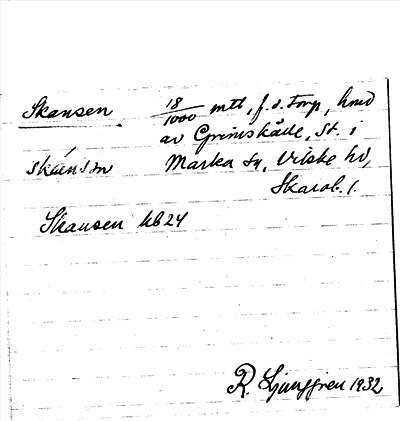 Skansen 18/1000 mtl, f.d. torp, hmd
av Grimskåele, St. i
skánsɷn Marka sn, Vilske hd,
Skarab. l.
Skansen hb24
R. Ljunggren 1932